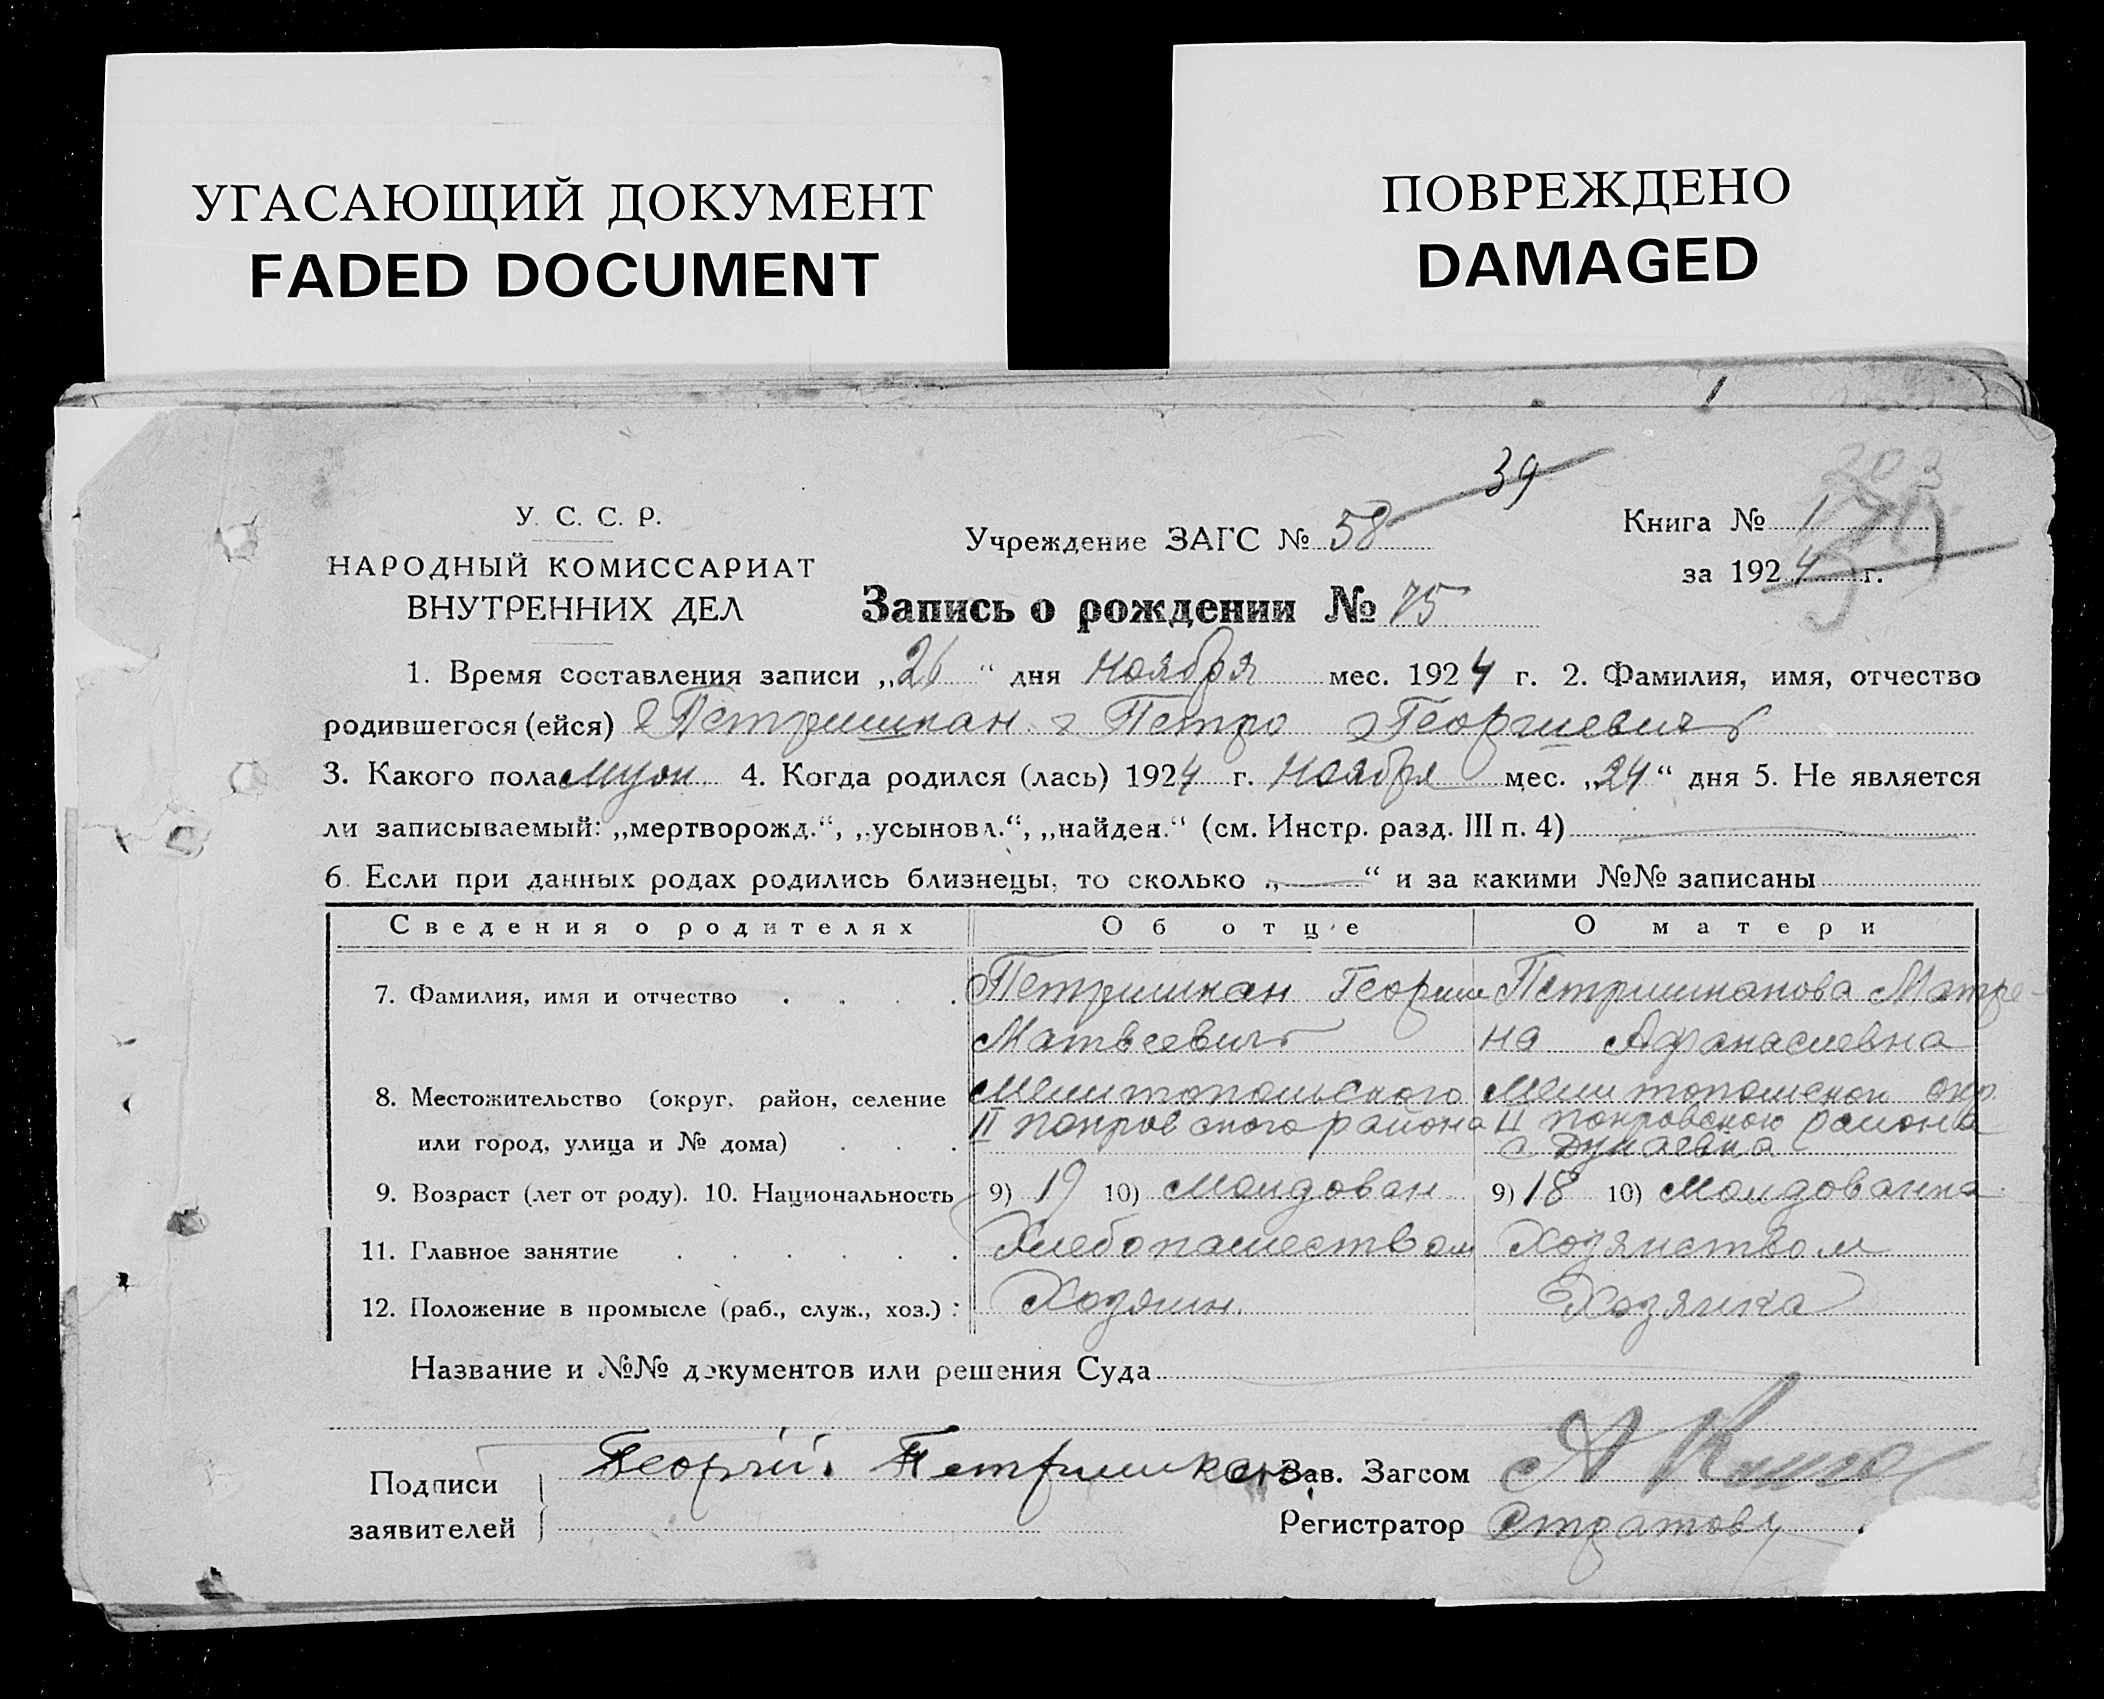 УГАСАЮЩИЙ ДОКУМЕНТ
FADED DOCUMENT
ПОВРЕЖДЕНО
DAMAGED
39
203
У. С. С. Р.
НАРОДНЫЙ КОМИССАРИАТ
ВНУТРЕННИХ ДЕЛ
Учреждение ЗАГС № 58
Книга № 1
за 1924 г.
Запись о рождении № 75
1. Время составления записи „26“ дня Ноября мес. 1924 г. 2. Фамилия, имя, отчество
родившегося (ейся) Петришкан Петро Георгиевич
3. Какого пола муж 4. Когда родился (лась) 1924 г. Ноября мес. „24“ дня 5. Не является
ли записываемый: „мертворожд.“, „усыновл.“, „найден.“ (см. Инстр. разд. III п. 4)
6. Если при данных родах родились близнецы, то сколько „—“ и за какими №№ записаны
Сведения о родителях Об отце О матери
7. Фамилия, имя и отчество . . . . Петришкан Георгий Петришканова Матре-
Матвеевич на Афанасиевна
8. Местожительство (округ, район, селение Мелитопольского Мелитопольской окр.
или город, улица и № дома) . . . II Покровского района II Покровского района
с Дунаевка
9. Возраст (лет от роду). 10. Национальность 9) 19 10) Молдован 9) 18 10) Молдованка
11. Главное занятие . . . . . . Хлебопашеством Хозяйством
12. Положение в промысле (раб., служ., хоз.) : Хозяин Хозяйка
Название и №№ документов или решения Суда
Подписи Георгій Петришкан Зав. Загсом
заявителей Регистратор